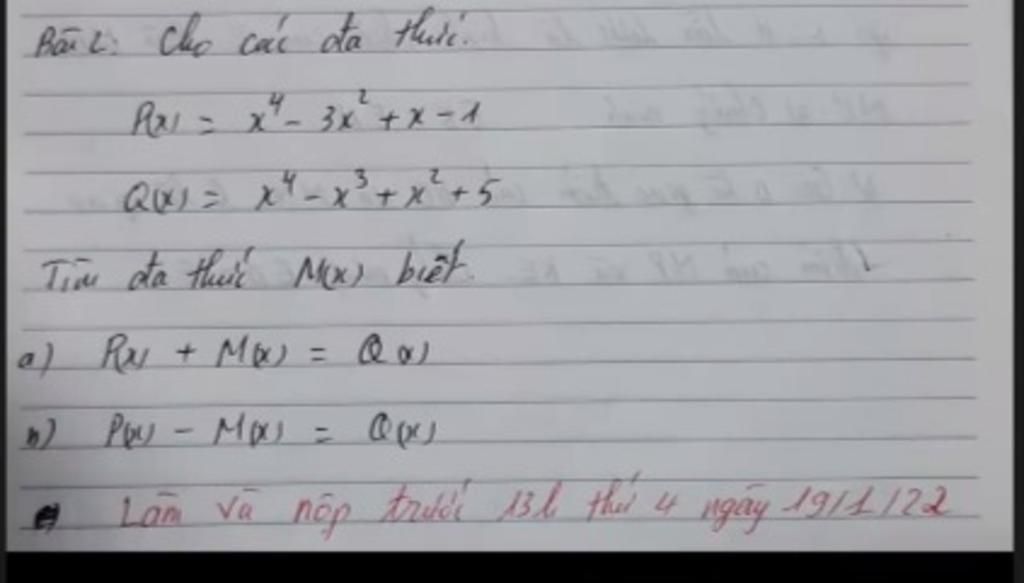 Bài 2: Cho các đa thức.
P(x) = x⁴ - 3x² + x - 1
Q(x) = x⁴ - x³ + x² + 5
Tìm đa thức M(x) biết.
a) P(x) + M(x) = Q(x)
b) P(x) - M(x) = Q(x)
Làm và nộp trước 13h thứ 4 ngày 19/1/22